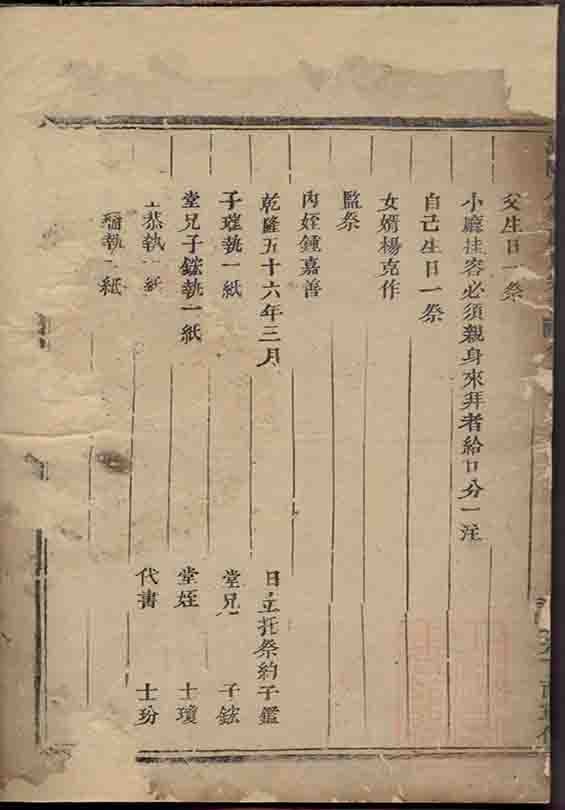 父生日一祭
小廳挂容必須親身來拜者給口分一注
自己生日一祭
女婿楊克作
監祭
內姪鍾嘉善
乾隆五十六年三月 日立托祭約子鑑
子瑾執一紙 堂兄 子鋐
堂兄子鋐執一紙 堂姪 士瓊
恭執一紙 代書 士玢
執一紙